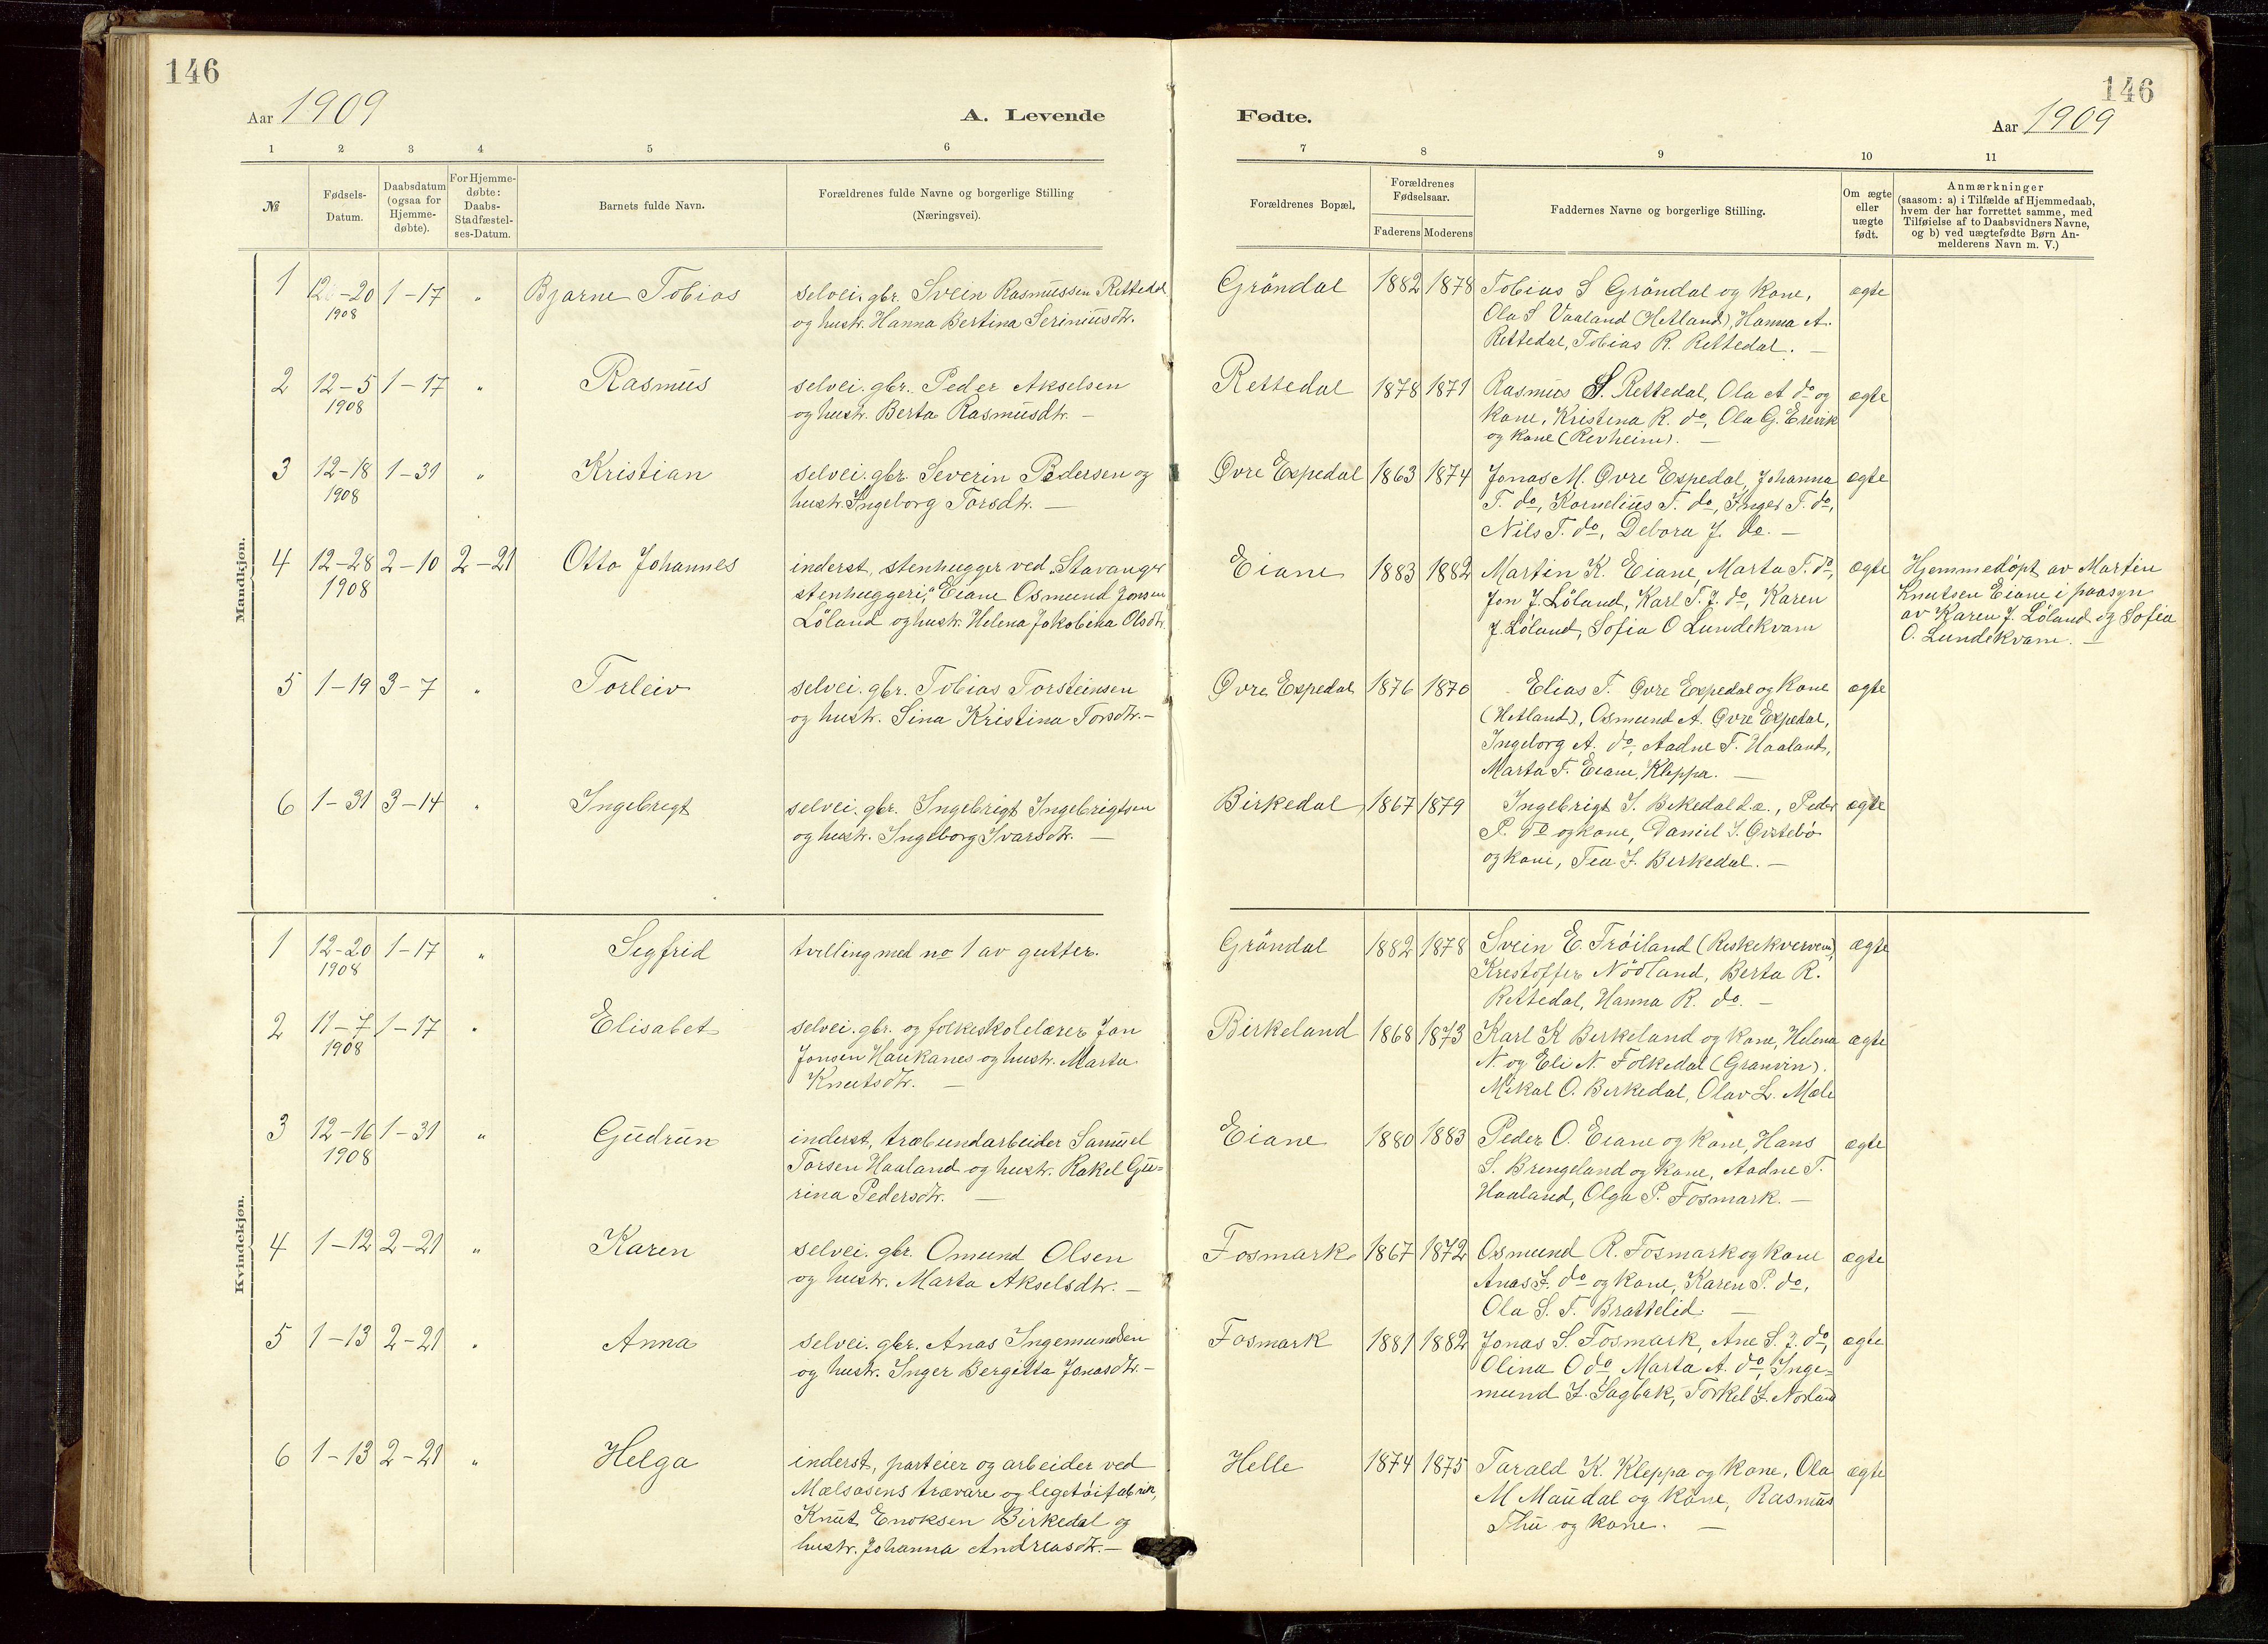 146
146
Aar 1909
A. Levende
Fødte.
Aar 1909
1 2 3 4 5 6
7 8 9 10 11
№
Fødsels-
Datum.
Daabsdatum
(ogsaa for
Hjemme-
døbte).
For Hjemme-
døbte:
Daabs-
Stadfæstel-
ses-Datum.
Barnets fulde Navn.
Forældrenes fulde Navne og borgerlige Stilling
(Næringsvei).
Forældrenes Bopæl.
Forældrenes
Fødselsaar.
Faderens Moderens
Faddernes Navne og borgerlige Stilling.
Om ægte
eller
uægte
født.
Anmærkninger
(saasom: a) i Tilfælde af Hjemmedaab,
hvem der har forrettet samme, med
Tilføielse af to Daabsvidners Navne,
og b) ved uægtefødte Børn An-
melderens Navn m. V.)
Mandkjøn.
1 12-20 1-17 " Bjarne Tobias
1908
selvei. gbr. Svein Rasmussen Rettedal
og hustr. Hanna Bertina Seriniusdtr.
Gröndal 1882 1878
Tobias S Gröndal og kone,
Ola S Vaaland (Hetland), Hanna A.
Rettedal, Tobias R. Rettedal. —
ægte
2 12-5 1-17 " Rasmus
1908
selvei. gbr. Peder Akselsen
og hustr. Berta Rasmusdtr. —
Rettedal 1878 1871
Rasmus S. Rettedal, Ola A do og
kone, Kristina R. do, Ola G. Erevik
og kone (Revheim). —
ægte
3 12-18 1-31 " Kristian
1908
selvei. gbr. Severin Pedersen og
hustr. Ingeborg Torsdtr. —
Øvre Espedal 1863 1874
Jonas M. Øvre Espedal, Johanna
T. do, Kornelius T. do, Inger T. do,
Nils T. do, Debora J. do. —
ægte
4 12-28 2-10 2-21 Otto Johannes
1908
inderst, stenhugger ved „Stavanger
stenhuggeri," Eiane Osmund Jonsen
Löland og hustr. Helena Jakobina Olsdtr.
Eiane 1883 1882
Martin K. Eiane, Marta T. do,
Jon J. Löland, Karl T. J. do, Karen
J. Löland, Sofia O Lundekvam
ægte
Hjemmedöpt av Martin
Knutsen Eiane i paasyn
av Karen J. Löland og Sofia
O. Lundekvam. —
5 1-19 3-7 " Torleiv
selvei. gbr. Tobias Torsteinsen
og hustr. Sina Kristina Torsdtr. —
Øvre Espedal 1876 1870
Elias T. Øvre Espedal og kone
(Hetland), Osmund A. Øvre Espedal,
Ingeborg A. do, Aadne T. Haaland,
Marta T. Eiane, Kleppa. —
ægte
6 1-31 3-14 " Ingebrigt
selvei. gbr. Ingebrigt Ingebrigtsen
og hustr. Ingeborg Ivarsdtr. —
Birkedal 1867 1879
Ingebrigt I. Bikedal d.æ., Peder
P. do og kone, Daniel I. Øvstebö
og kone, Tea I. Berkedal. —
ægte
Kvindekjøn.
1 12-20 1-17 " Segfrid
1908
tvilling med no 1 av gutter.
Gröndal 1882 1878
Svein E. Tröiland (Reskekverven),
Krestoffer Nödland, Berta R.
Rettedal, Hanna R. do. —
ægte
2 11-7 1-17 " Elisabet
1908
selvei. gbr. og folkeskolelærer Jon
Jonsen Haukanes og hustr. Marta
Knutsdtr. —
Birkeland 1868 1873
Karl K Berkeland og kone, Helena
N. og Eli N. Folkedal (Granvin).
Mikal O. Berkedal, Olav L. Mæle
ægte
3 12-16 1-31 " Gudrun
1908
inderst, træbundarbeider Samuel
Torsen Haaland og hustr. Rakel Gu=
rina Pedersdtr. —
Eiane 1880 1883
Peder O. Eiane og kone, Hans
S. Brengeland og kone, Aadne T.
Haaland, Olga P. Fosmark. —
ægte
4 1-12 2-21 " Karen
selvei. gbr. Omund Olsen
og hustr. Marta Akselsdtr. —
Fosmark 1867 1872
Osmund R. Fosmark og kone
Anas I. do og kone, Karen P. do,
Ola S. T. Brattelid. —
ægte
5 1-13 2-21 " Anna
selvei. gbr. Anas Ingemundsen
og hustr. Inger Bergitta Jonasdtr. —
Fosmark 1881 1882
Jonas S. Fosmark, Ane S. J. do,
Olina O do, Marta A. do, Inge=
mund I. Sagbak, Torkel I. Norland
ægte
6 1-13 2-21 " Helga
inderst, parteier og arbeider ved
Mælsosens trævare og legetöifabrik,
Knut Enoksen Birkedal og
hustr. Johanna Andreasdtr. —
Helle 1874 1875
Tarald K. Kleppa og kone, Ola
M Maudal og kone, Rasmus
Thu og kone. —
ægte